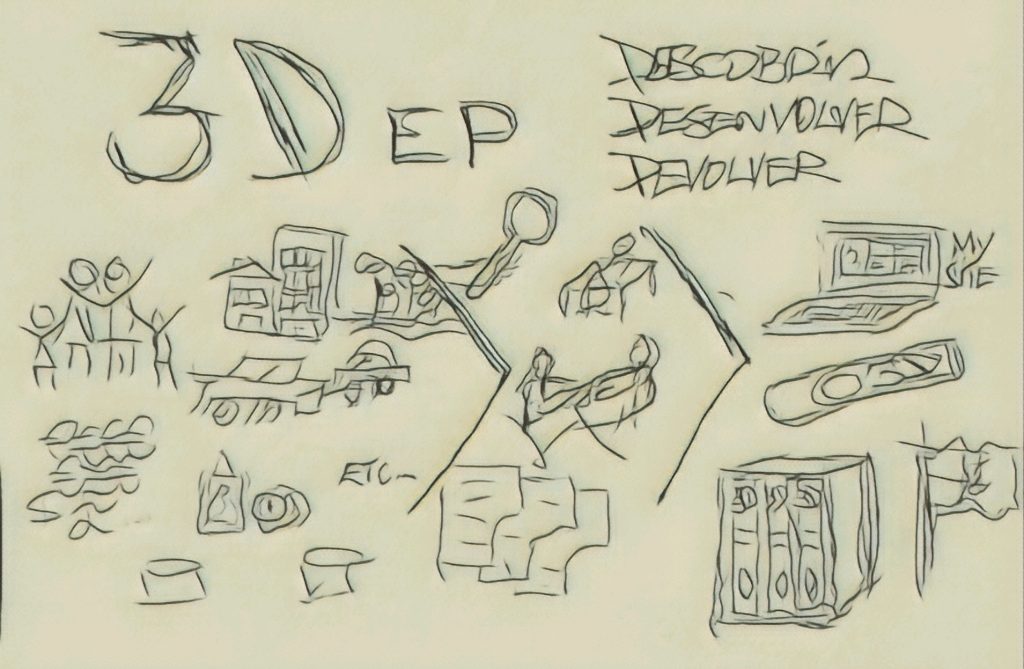 3D EP
DESCOBRIR
DESENVOLVER
DEVOLVER
MY
SITE
ETC...